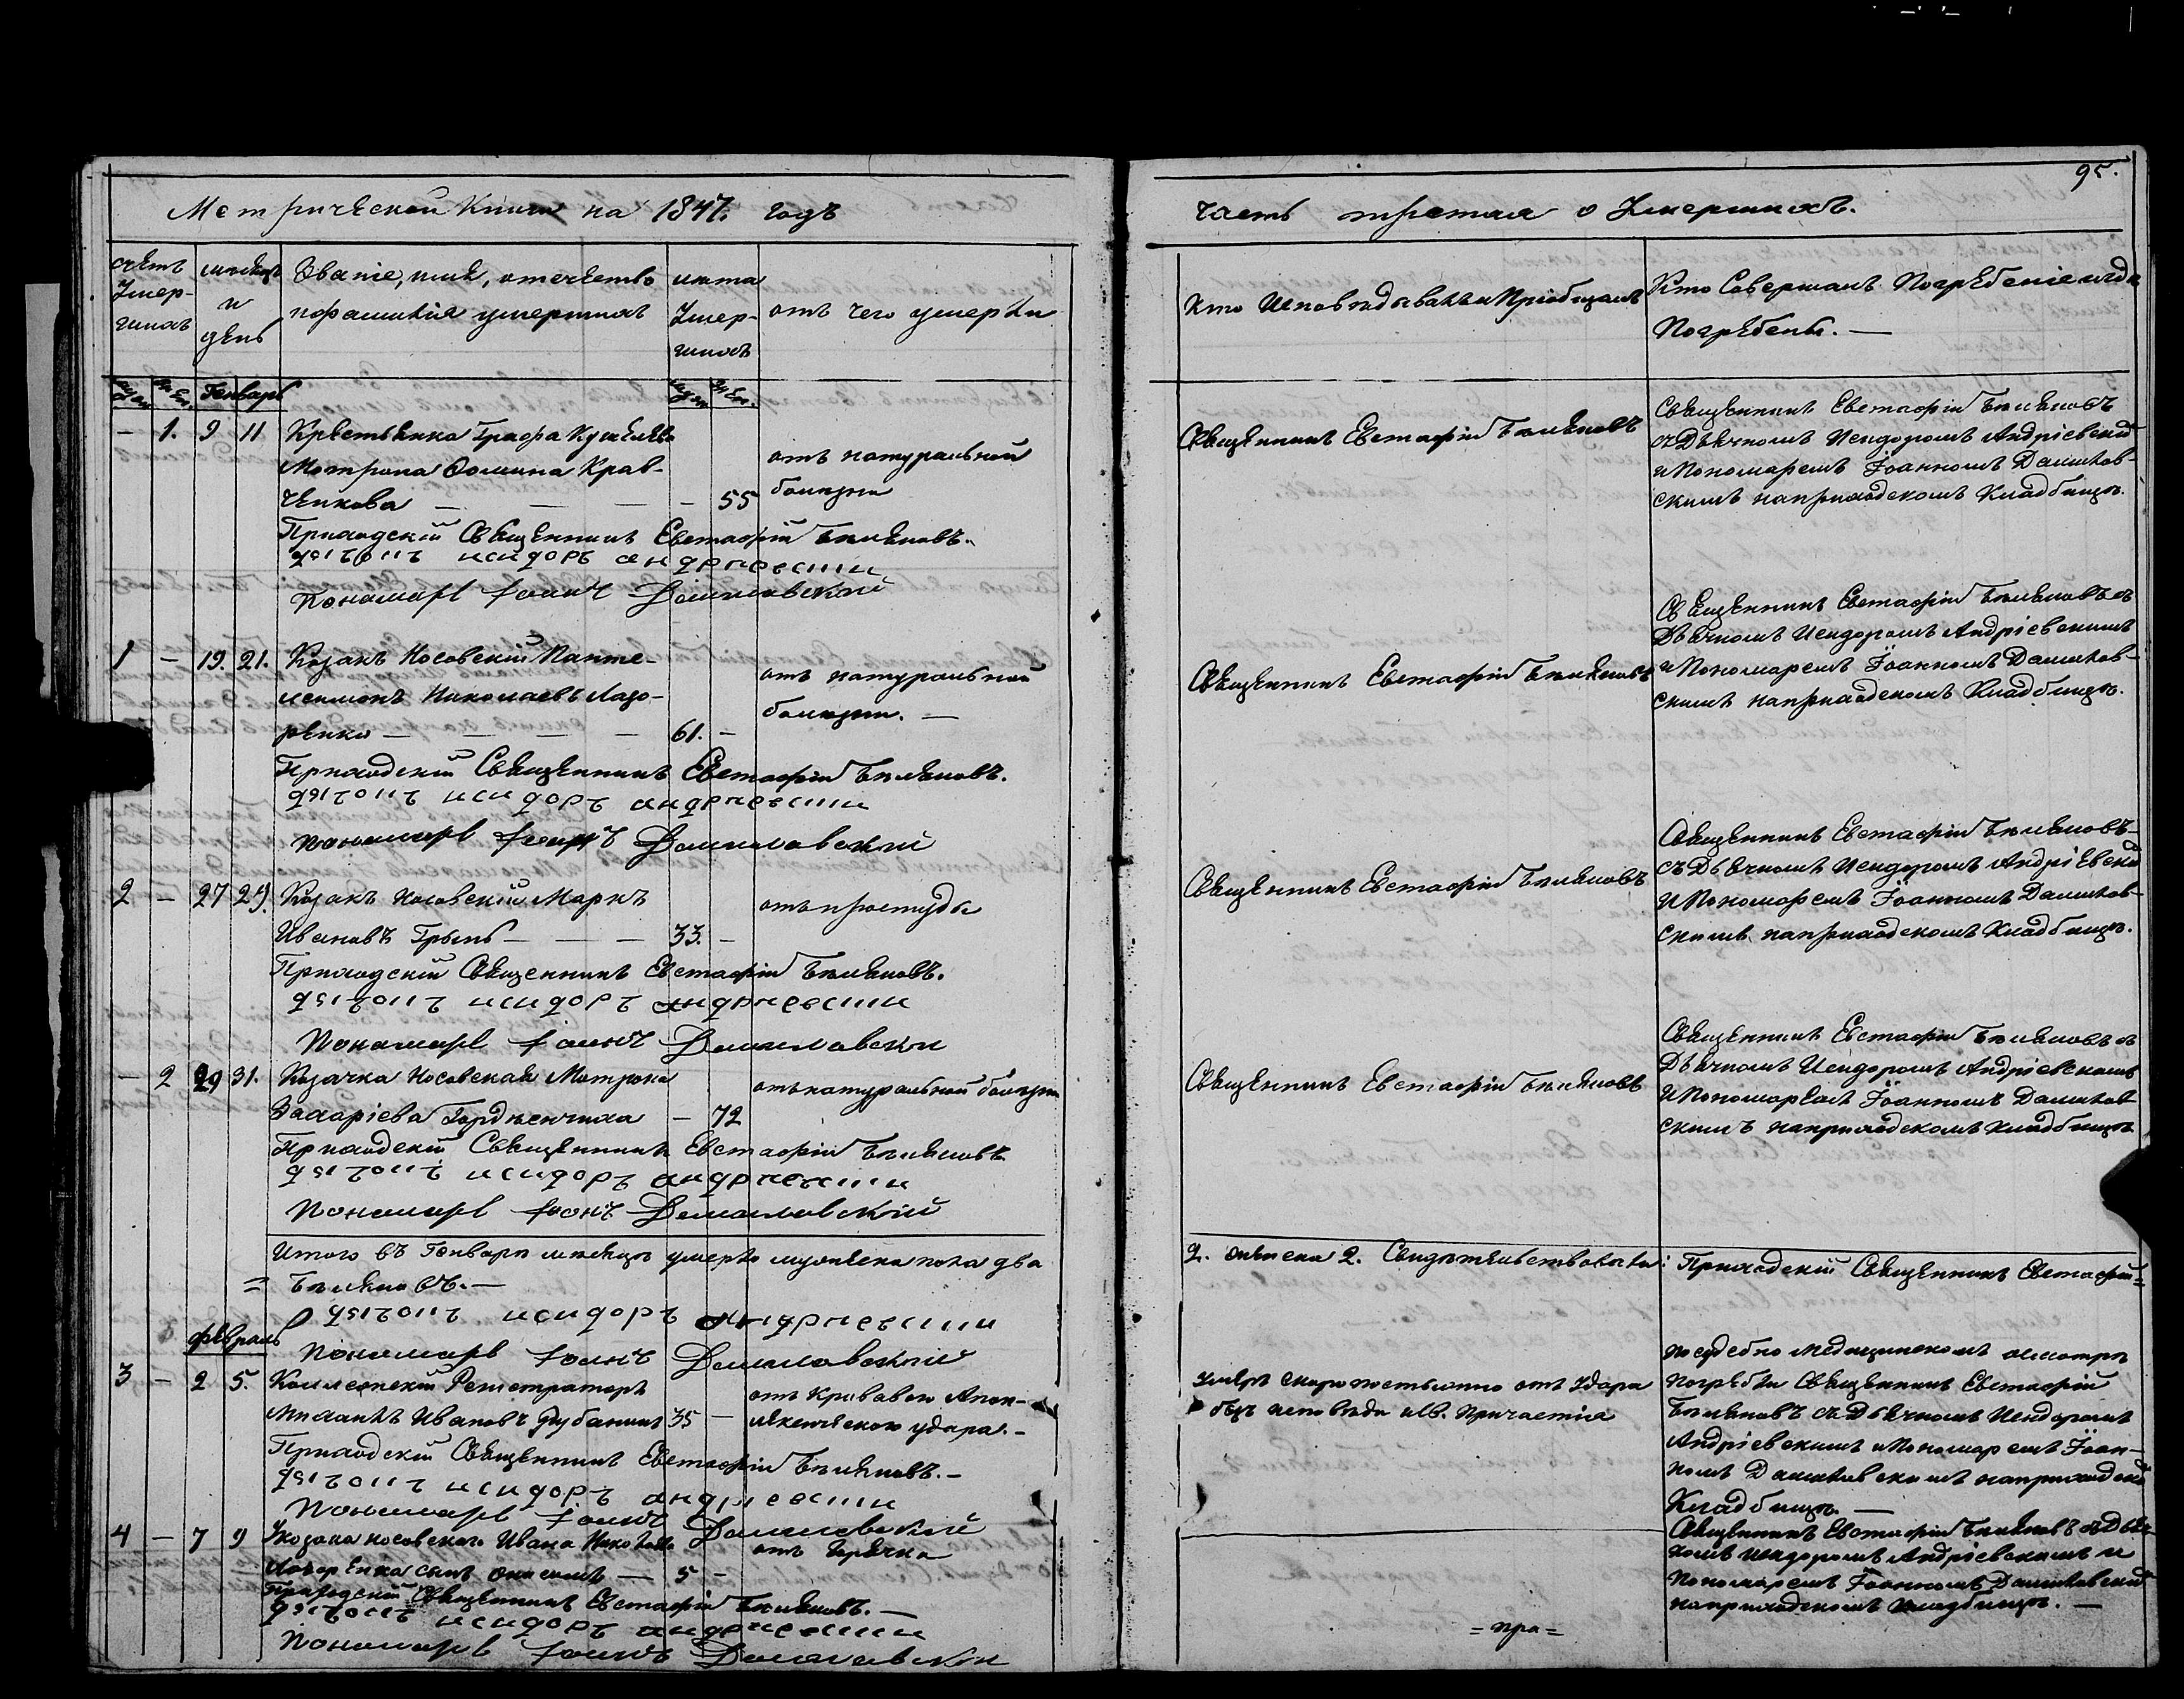 95.
Метрической Книги на 1847. годъ
часть третая о Умершихъ.
счетъ Умер-шихъ
мѣсяцъ и день
Званіе, имя, отечество и фамилія умершихъ
лѣта Умер-шихъ
отъ чего умерли
Кто Исповѣдывалъ и Пріобщалъ
Кто Совершалъ Погребеніе и гдѣ
Погребены. —
Генварь
— 1. 9 11 Крестьянка Графа Кушелева
Мотрона Ѳомина Крав-
ченкова — — — — 55
отъ натуральной
болѣзни
Священникъ Евстафій Биляновъ
Священникъ Евстафій Биляновъ
съ Дьячкомъ Исидоромъ Андріевским
и Пономаремъ Іоанномъ Дашков-
скимъ на приходскомъ Кладбищѣ.
Приходскій Священникъ Евстафій Биляновъ.
дячокъ исидоръ андриевски
Пономарь Іоанъ
1 — 19. 21. Козакъ Носовскій Панте-
леимонъ Николаевъ Лаза-
ренко — — — — 61. —
отъ натуральной
болѣзни. —
Священникъ Евстафій Биляновъ
Священникъ Евстафій Биляновъ съ
Дьячкомъ Исидоромъ Андріевскимъ
и Пономаремъ Іоанномъ Дашков-
скимъ на приходскомъ Кладбищѣ.
Приходскій Священникъ Евстафій Биляновъ.
дячокъ исидоръ андриевски
пономарь Іоанъ
2 — 27 29. Козакъ Носовскій Маркъ
Ивановъ Грынь — — — 33. —
отъ простуды
Священникъ Евстафій Биляновъ
Священникъ Евстафій Биляновъ
съ Дьячкомъ Исидоромъ Андріевским
и Пономаремъ Іоанномъ Дашков-
скимъ на приходскомъ Кладбищѣ.
Приходскій Священникъ Евстафій Биляновъ.
дячокъ исидоръ андриевски
Пономарь Іоанъ
— 2 29 31. Козачка Носовская Мотрона
Захаріева Гордѣенчиха — 72
отъ натуральной болѣзни
Священникъ Евстафій Биляновъ
Священникъ Евстафій Биляновъ съ
Дьячкомъ Исидоромъ Андріевскимъ
и Пономаремъ Іоанномъ Дашков-
скимъ на приходскомъ кладбищѣ
Приходскій Священникъ Евстафій Биляновъ.
дячокъ исидоръ андриевски
Пономарь Іоанъ
Итого въ Генварѣ мѣсяцѣ умерло мужеска пола два
2. женска 2. Свидѣтельствовали: Приходскій Священникъ Евстафій =
= Биляновъ. —
дячокъ исидоръ андриевски
Пономарь Іоанъ
февраль
3 — 2 5. Коллежскій Регистраторъ
Михаилъ Ивановъ 35 —
отъ кроваваго Апоп-
лексическою удара. —
умеръ скоропостыжно отъ Удара
безъ исповѣди и Св. Причастія
по судебно медицинскомъ осмотрѣ
погребли Священникъ Евстафій
Биляновъ съ Дьячкомъ Исидоромъ
Андріевскимъ и Пономаремъ Іоан-
номъ Дашковскимъ на приходском
Кладбищѣ. —
Приходскій Священникъ Евстафій Биляновъ. —
дячокъ исидоръ андриевски
Пономарь Іоанъ
4 — 7 9 У козака носовскаго Ивана Николаева
Лазаренка сынъ — 5 —
отъ горячки
Священникъ Евстафій Биляновъ съ Дьяч-
комъ Исидоромъ Андріевскимъ и
Пономаремъ Іоанномъ Дашковским
на приходскомъ кладбищѣ. —
Приходскій Священникъ Евстафій Биляновъ. —
дячокъ исидоръ андриевски
Пономарь Іоанъ
= при =